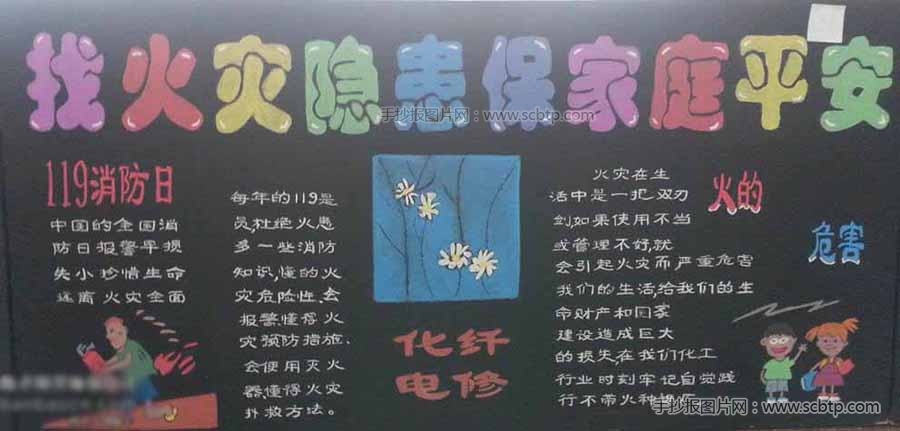 找火灾隐患保家庭平安
手抄报图片网：www.scbtp.com
119消防日
中国的全国消
防日报警早损
失小珍惜生命
远离火灾全面
每年的119是
员杜绝火患
多一些消防
知识,懂的火
灾危险性.会
报警懂得火
灾预防措施.
会使用灭火
器,懂得火灾
扑救方法。
化纤
电修
火的
危害
火灾在生
活中是一把双刃
剑,如果使用不当
或管理不好,就
会引起火灾而严重危害
我们的生活,给我们的生
命财产和国家
建设造成巨大
的损失,在我们化工
行业时刻牢记自觉践
行不带火种
手抄报图片网：www.scbtp.com